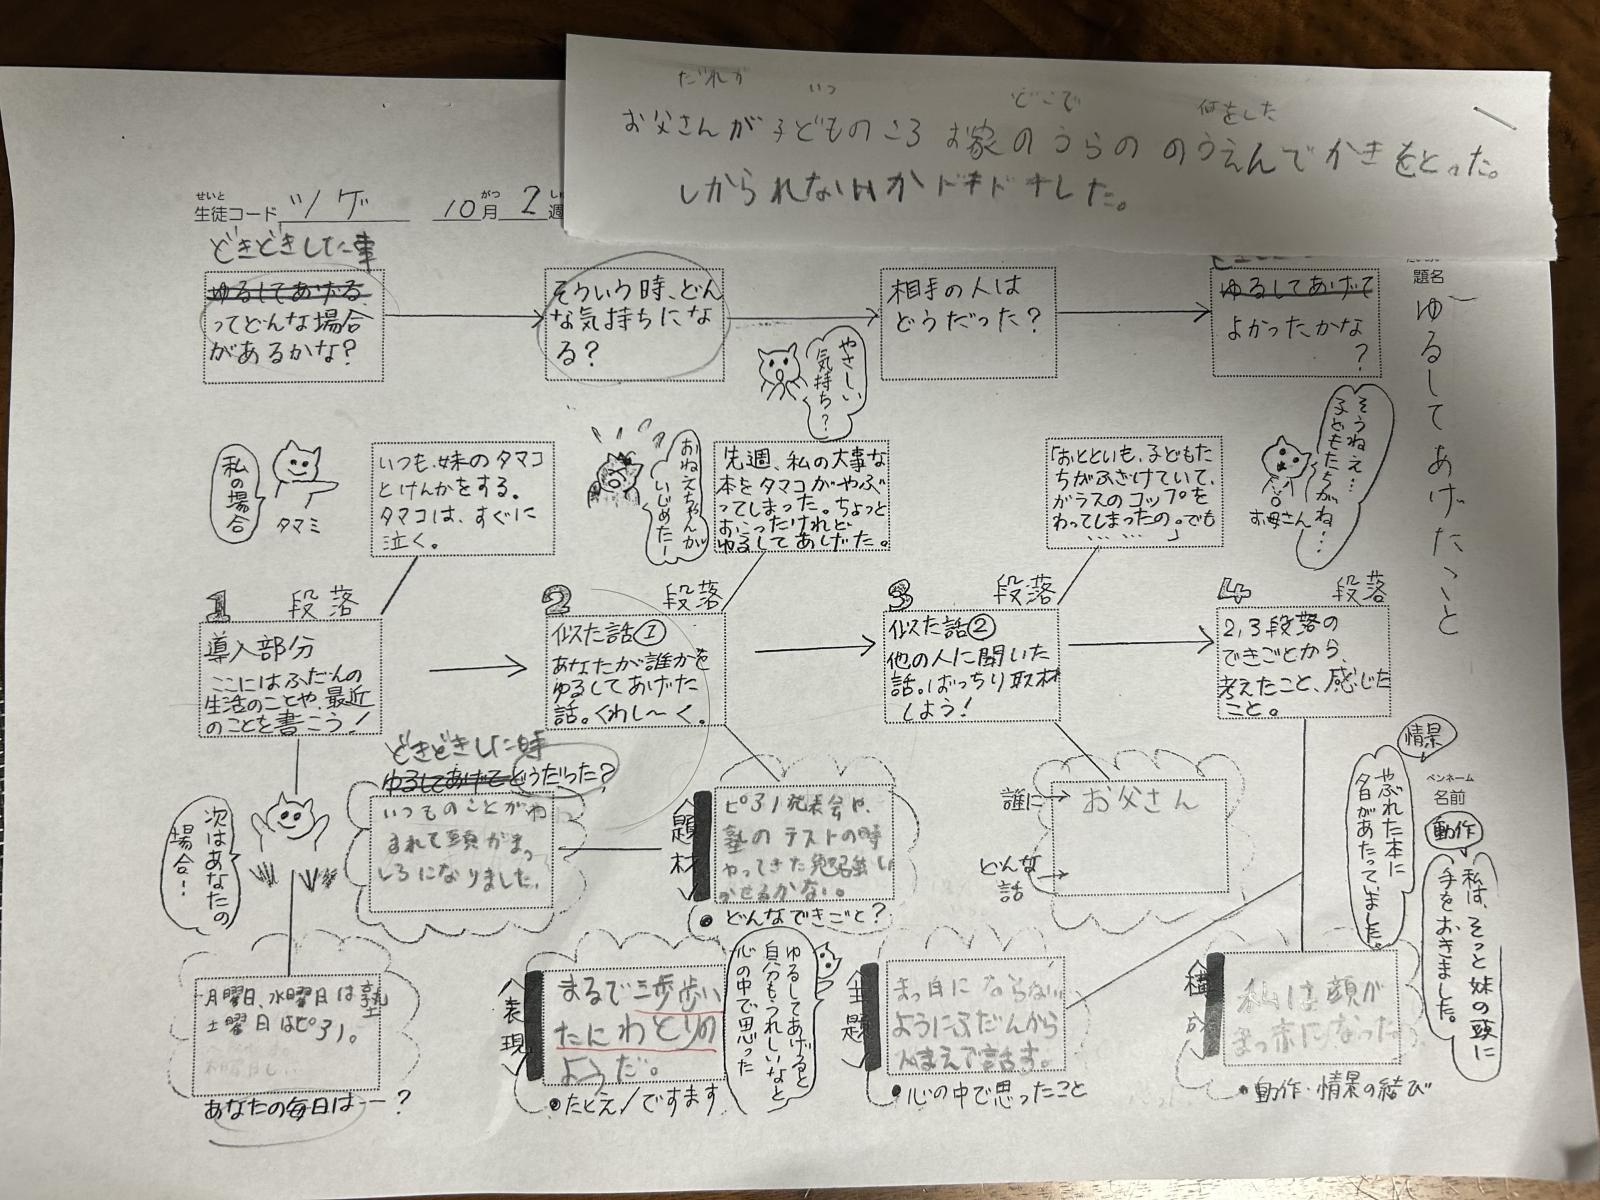 だれが
いつ
どこで
何をした
お父さんが子どものころお家のうらののうえんでかきをとった。
しかられないかドキドキした。
せいと
生徒コード ツゲ
がつ
10月2週
題名
ゆるしてあげたこと
ペンネーム
名前
どきどきした事
ゆるしてあげる
ってどんな場合
があるかな?
そういう時、どん
な気持ちにな
る?
相手の人は
どうだった?
ゆるしてあげて
よかったかな
?
やさしい
気持ち?
私の場合
タマミ
いつも、妹のタマコ
とけんかをする。
タマコは、すぐに
泣く。
おねえちゃんが
いじめたー
先週、私の大事な
本をタマコがやぶ
ってしまった。ちょっと
おこったけれど
ゆるしてあげた。
「おとといも、子どもた
ちがふざけていて、
ガラスのコップを
わってしまったの。でも
……」
そうねえ…
子どもたちがね…
お母さん
1 段落
導入部分
ここにはふだんの
生活のことや、最近
のことを書こう!
2 段落
似た話①
あなたが誰かを
ゆるしてあげた
話。くわし〜く。
3 段落
似た話②
他の人に聞いた
話。ばっちり取材
しよう!
4 段落
2,3段落の
できごとから、
考えたこと、感じた
こと。
次はあなたの
場合!
どきどきした時
ゆるしてあげてどうだった?
いつものことがわ
すれて頭がまっ
しろになりました。
題材
ピアノ発表会や、
塾のテストの時
やってきた勉強い
かせるかない。
●どんなできごと?
誰に→
お父さん
どんな
話→
情景
やぶれた本に
夕日があたってました。
動作
私は、そっと妹の頭に
手をおきました。
月曜日、水曜日は塾
土曜日はピアノ。
あなたの毎日は…?
表現
まるで三歩歩い
たにわとりの
ようだ。
●たとえ/ですます
ゆるしてあげると
自分もうれしいなと
心の中で思った
主題
まっ白にならない
ようにふだんから
ふまえて話す。
●心の中で思ったこと
構成
私は顔が
まっ赤になった
●動作・情景の結び